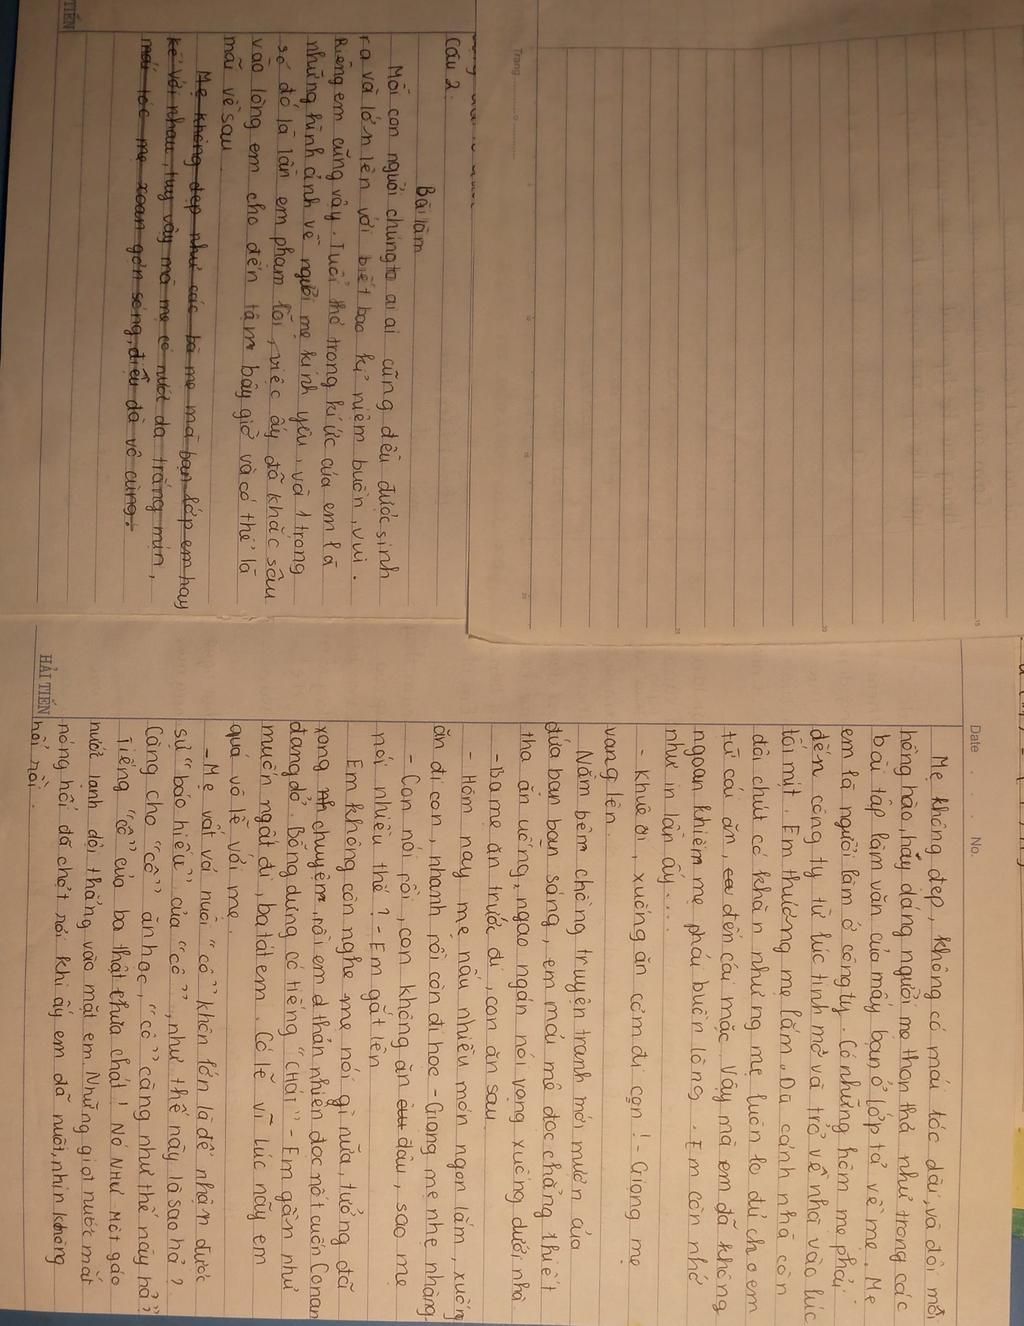 Câu 2.
Bài làm
Mỗi con người chúng ta ai ai cũng đều được sinh
ra và lớn lên với biết bao kỉ niệm buồn, vui.
Riêng em cũng vậy. Tuổi thơ trong kí ức của em là
những hình ảnh về người mẹ kính yêu, và 1 trong
số đó là lần em phạm lỗi, việc ấy đã khắc sâu
vào lòng em cho đến tận bây giờ và có thể là
mãi về sau.
Mẹ không đẹp như các bà mẹ mà bạn lớp em hay
kể với nhau, tuy vậy mà mẹ có nước da trắng mịn,
mái tóc mẹ xoan gợn sóng, điệu đà vô cùng.
TIẾN
Trang
Date No.
Mẹ không đẹp, không có mái tóc dài, và đôi môi
hồng hào, hãy dáng người mẹ thon thả như trong các
bài tập làm văn của mấy bạn ở lớp tả về mẹ. Mẹ
em là người làm ở công ty. Có những hôm mẹ phải
đến công ty từ lúc tinh mơ và trở về nhà vào lúc
tối mịt. Em thương mẹ lắm. Dù cảnh nhà còn
đôi chút có khăn nhưng mẹ luôn lo đủ cho em
từ cái ăn, đến cái mặc. Vậy mà em đã không
ngoan khiến mẹ phải buồn lòng. Em còn nhớ
như in lần ấy....
- Khuê ơi, xuống ăn cơm đi con! - Giọng mẹ
vang lên.
Nằm bên chồng truyện tranh mới mượn của
đứa bạn bạn sáng, em mải mê đọc chẳng thiết
tha ăn uống, ngao ngán nói vọng xuống dưới nhà
- Ba mẹ ăn trước đi, con ăn sau.
- Hôm nay mẹ nấu nhiều món ngon lắm, xuống
ăn đi con, nhanh rồi còn đi học - Giọng mẹ nhẹ nhàng.
- Con nói rồi, con không ăn đâu, sao mẹ
nói nhiều thế? - Em gắt lên
Em không còn nghe mẹ nói gì nữa, tưởng đã
xong chuyện, rồi em thản nhiên đọc nốt cuốn Conan
đang dở. Bỗng dưng có tiếng "CHÁT" - Em gần như
muốn ngất đi, ba tát em. Có lẽ vì lúc nãy em
quá vô lễ với mẹ.
- Mẹ vất vả nuôi "cô" khôn lớn là để nhận được
sự "báo hiếu" của "cô", như thế này là sao hả?
Càng cho "cô" ăn học, "cô" càng như thế này hả?
Tiếng "cô" của ba thật chua chát! Nó NHƯ MỘT gáo
nước lạnh dội thẳng vào mặt em. Những giọt nước mắt
nóng hổi đã chợt rơi khi ấy em đã nuốt, nhịn không
nổi rồi.
HẢI TIẾN